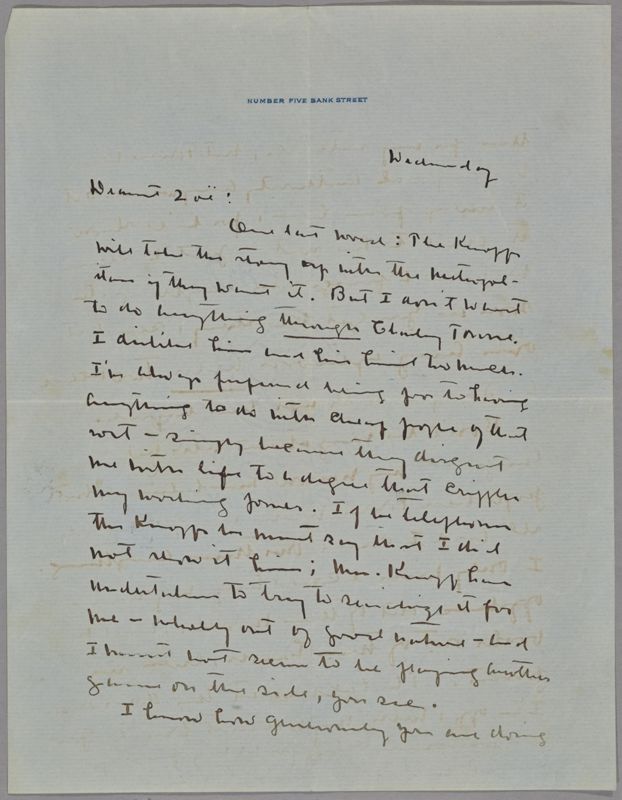 NUMBER FIVE BANK STREET
Wednesday
Dearest Zoë:
One last word: The Knopfs
will take the story up with the Metropol-
itan if they want it. But I don't want
to do anything through Charley Towne.
I dislike him and his kind too much.
I've always preferred being poor to having
anything to do with cheap people of that
sort - simply because they disgust
me with life to a degree that cripples
my working power. If he telephones
the Knopfs he must say that I did
not show it him; Mrs. Knopf have
undertaken to try to serialize it for
me - wholly out of good nature - and
I must not seem to be playing another
game on the side, you see.
I know how generously you are doing